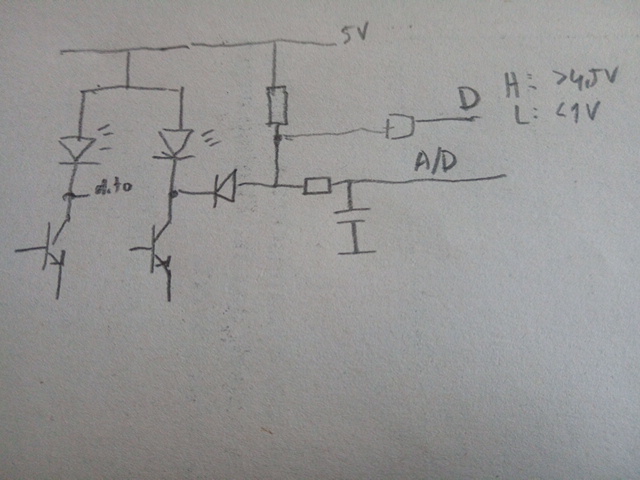 5V
H: >4,5V
D
L: <1V
A/D
dito